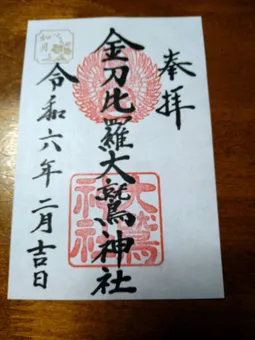 奉拝
金刀比羅大鷲神社
令和六年二月吉日
如月
大鷲
神社